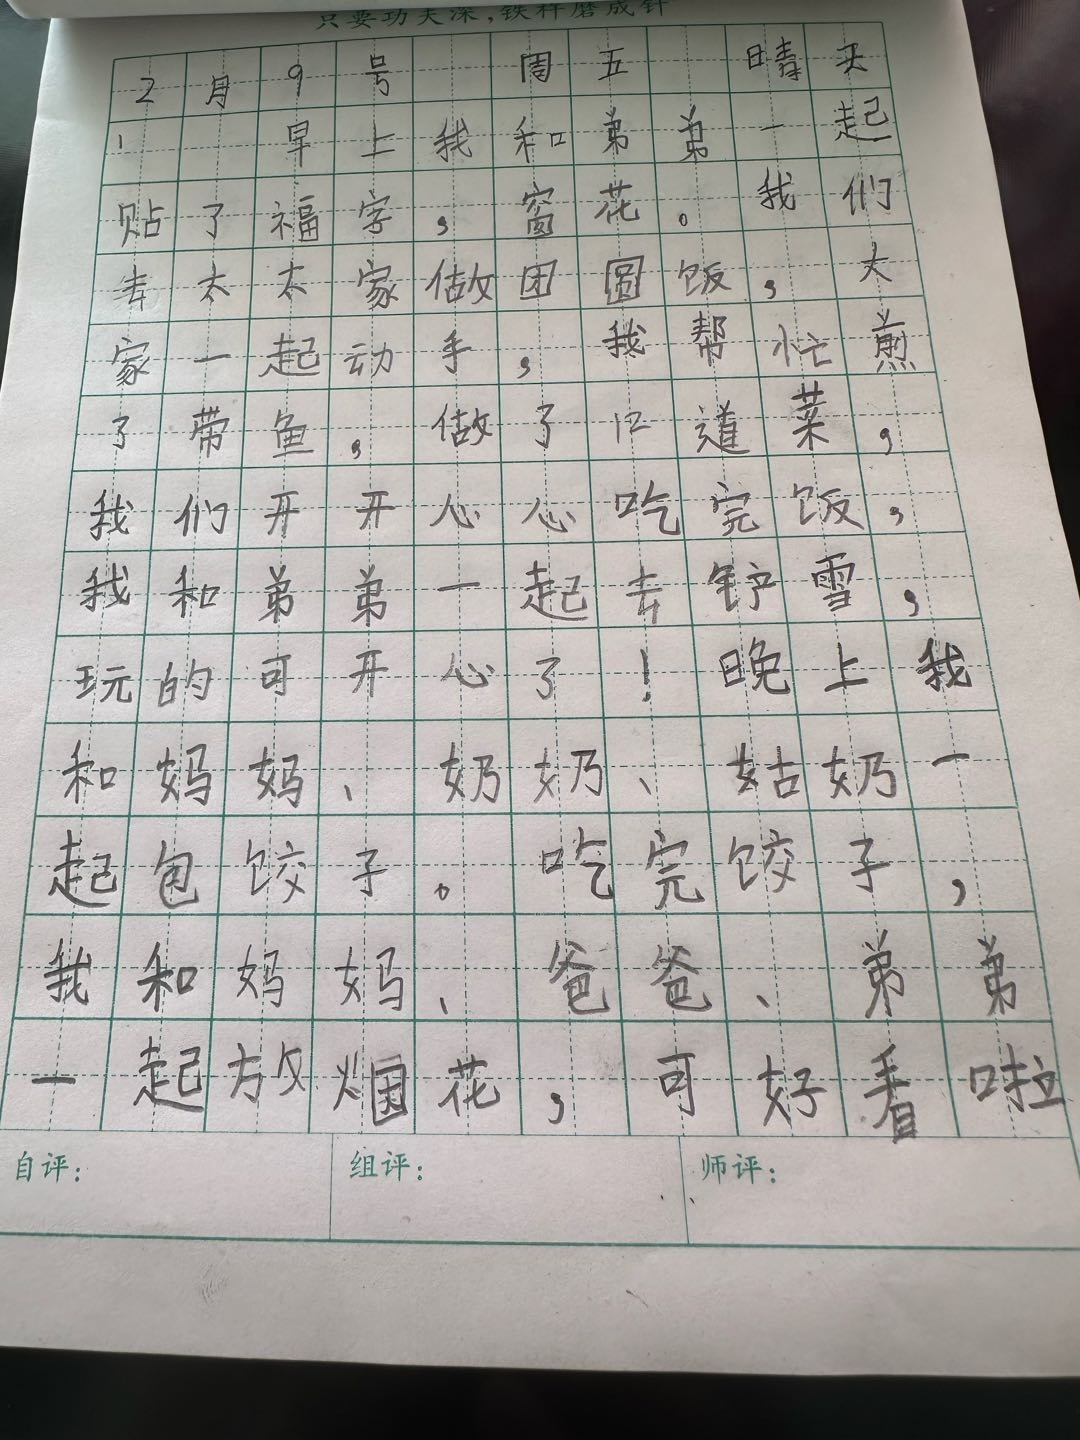 只要功夫深,铁杵磨成针
2月9号 周五 晴天
早上我和弟弟一起
贴了福字,窗花。我们
去太太家做团圆饭,大
家一起动手,我帮忙煎
了带鱼,做了12道菜,
我们开开心心吃完饭,
我和弟弟一起去铲雪,
玩的可开心了!晚上我
和妈妈、奶奶、姑奶一
起包饺子。吃完饺子,
我和妈妈、爸爸、弟弟
一起放烟花,可好看啦
自评: 组评: 师评: